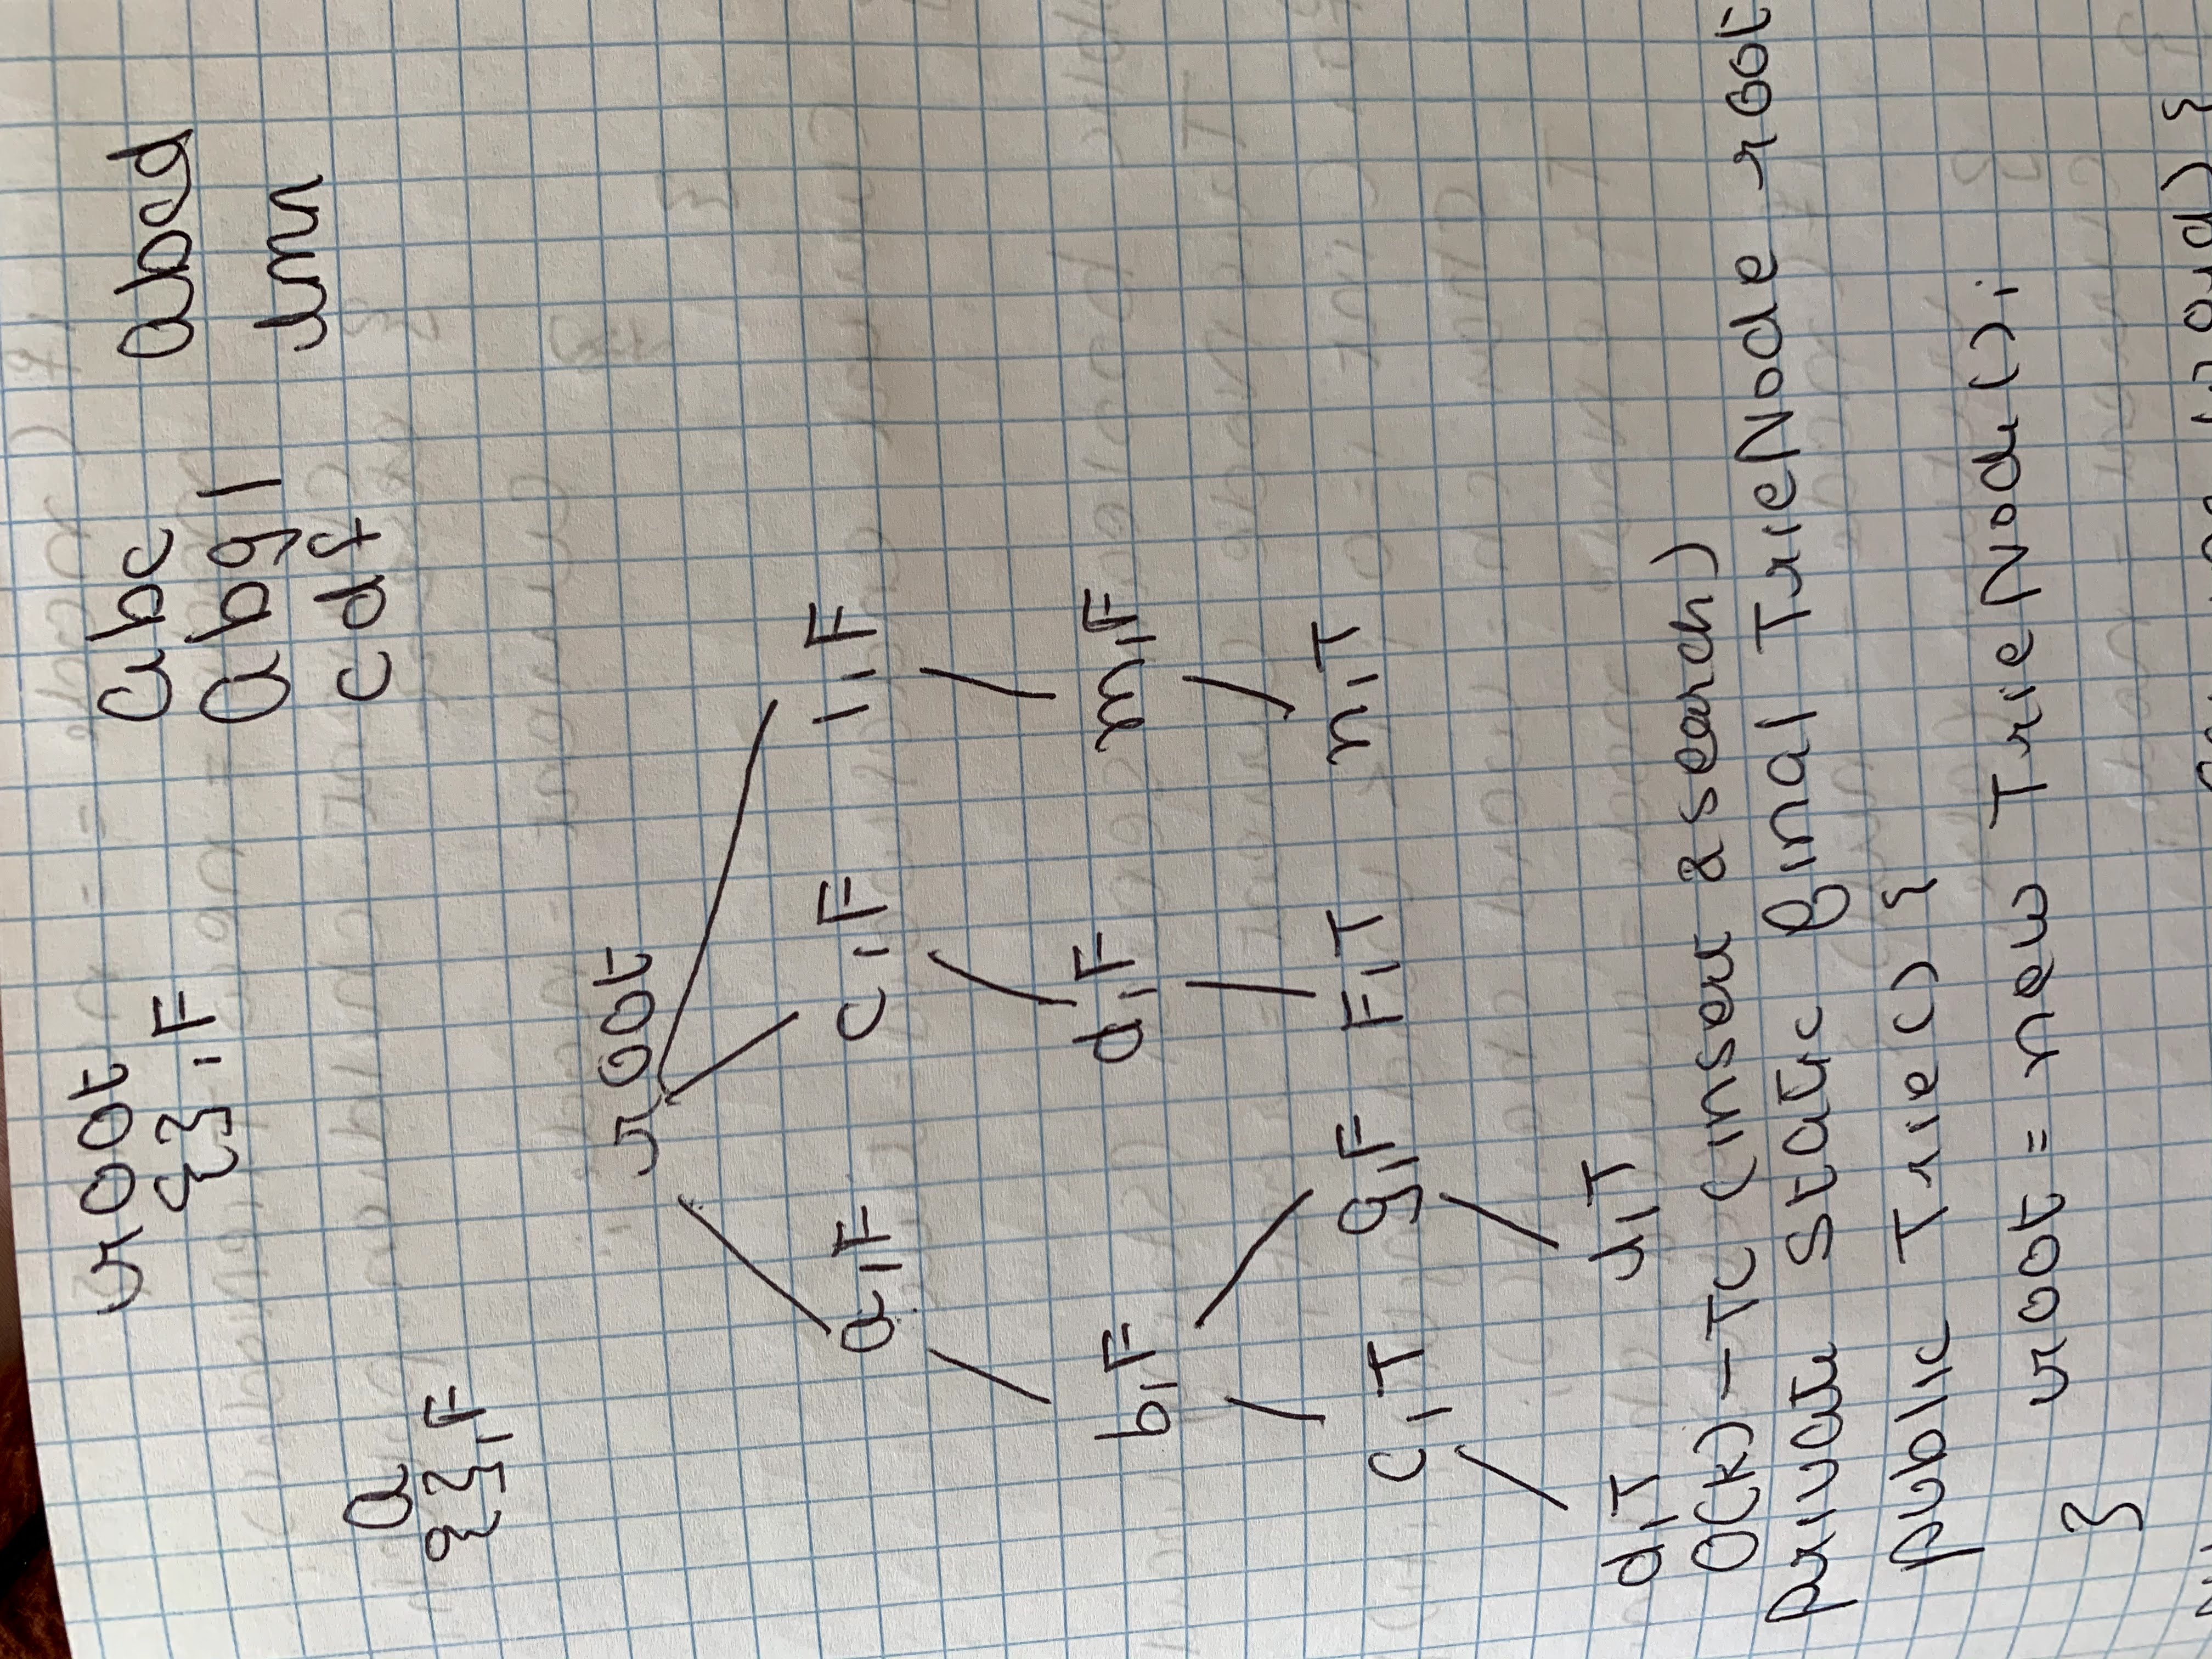 root
{},F
abc abcd
abgl lmn
cdf
a
{},F
root
a,F c,F l,F
b,F d,F m,F
c,T g,F F,T n,T
d,T l,T
O(K) - TC (insert & search)
private static final TrieNode root
public Trie() {
root = new TrieNode();
}
word) {